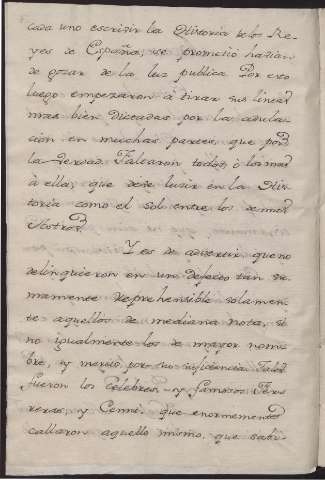 cada uno escrivir la Historia de los Re-
yes de España, se prometio havian
de gozar de la luz publica Por esto
luego empezaron à tirar sus lineas
mas bien dictadas por la adula-
cion en muchas partes, que por
la verdad. Faltaron todos, ò los mas
à ella; que deve lucir en la His-
toria como el sol entre los demas
Astros.
Y es de advertir que no
delinquieron en un defecto tan su-
mamente reprehensible solamen-
te aquellos de mediana nota, si
no igualmente los de mayor nom-
bre, y merito por su suficiencia Tales
fueron los Celebres, y famosos Fer-
reras, y Cenni que enormemente
callaron aquello mismo, que sabi-